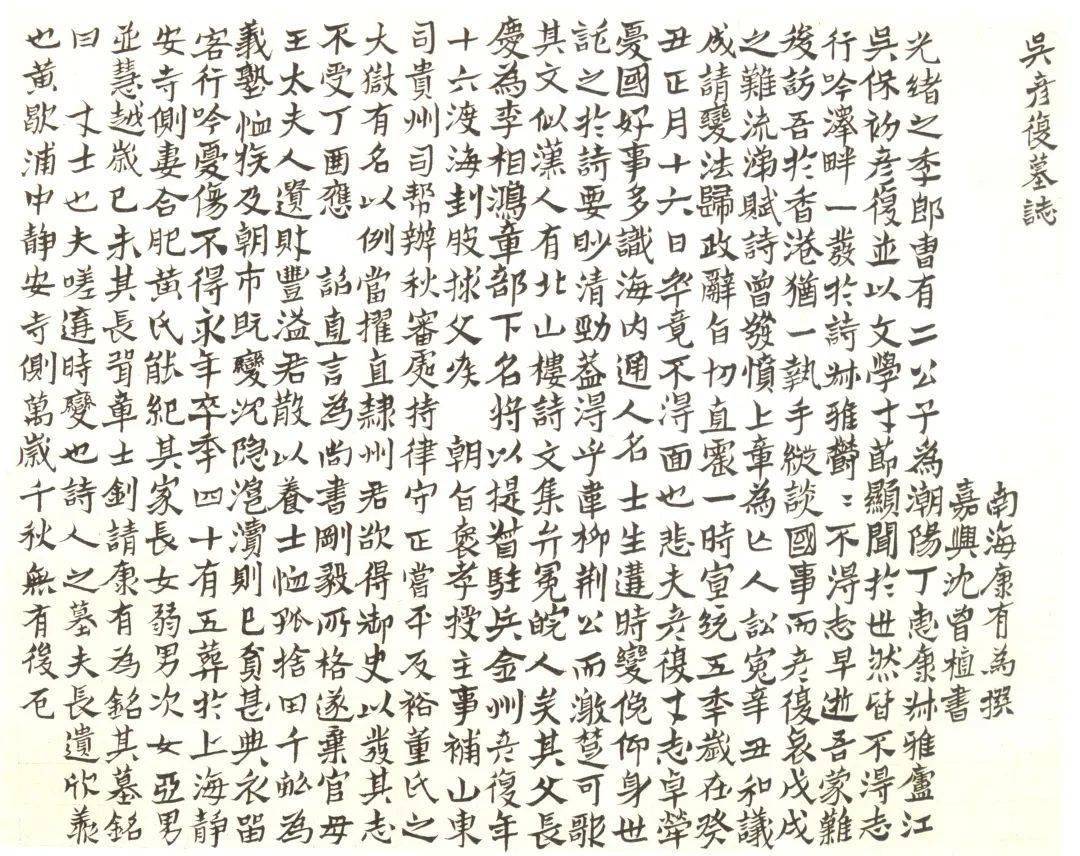 吳彥復墓誌
南海康有為撰
嘉興沈曾植書
光緒之季郎曹有二公子為潮陽丁惠康叔雅廬江
吳保初彥復並以文學才節顯聞於世然皆不得志
行吟澤畔一發於詩叔雅鬱〻不得志早逝吾蒙難
後訪吾於香港猶一執手縱談國事而彥復哀戊戌
之難流涕賦詩曾發憤上章為亡人訟冤辛丑和議
成請變法歸政辭旨切直震一時宣統五季歲在癸
丑正月十六日卒竟不得面也悲夫彥復才志卓犖
憂國好事多識海內通人名士生遘時變俛仰身世
託之於詩要眇清勁蓋得乎韋柳荊公而激楚可歌
其文似漢人有北山樓詩文集弁冕皖人矣其父長
慶為李相鴻章部下名將以提督駐兵金州彥復年
十六渡海刲股捄父疾　朝旨褒孝授主事補山東
司貴州司帮辦秋審處持律守正嘗平反裕董氏之
大獄有名以例當擢直隸州君欲得御史以發其志
不受丁酉應　詔直言為尚書剛毅所格遂棄官毋
王太夫人遺財豐溢君散以養士恤孤捨田千畝為
義塾恤族及朝市既變沈隐滬瀆則已貧甚典衣留
客行吟憂傷不得永年卒季四十有五葬於上海靜
安寺側妻合肥黃氏能紀其家長女弱男次女亞男
並慧越歲己未其長壻章士釗請康有為銘其墓銘
曰　才士也夫嗟遘時變也詩人之墓夫長遺欣羨
也黃歇浦中靜安寺側萬歲千秋無有後厄